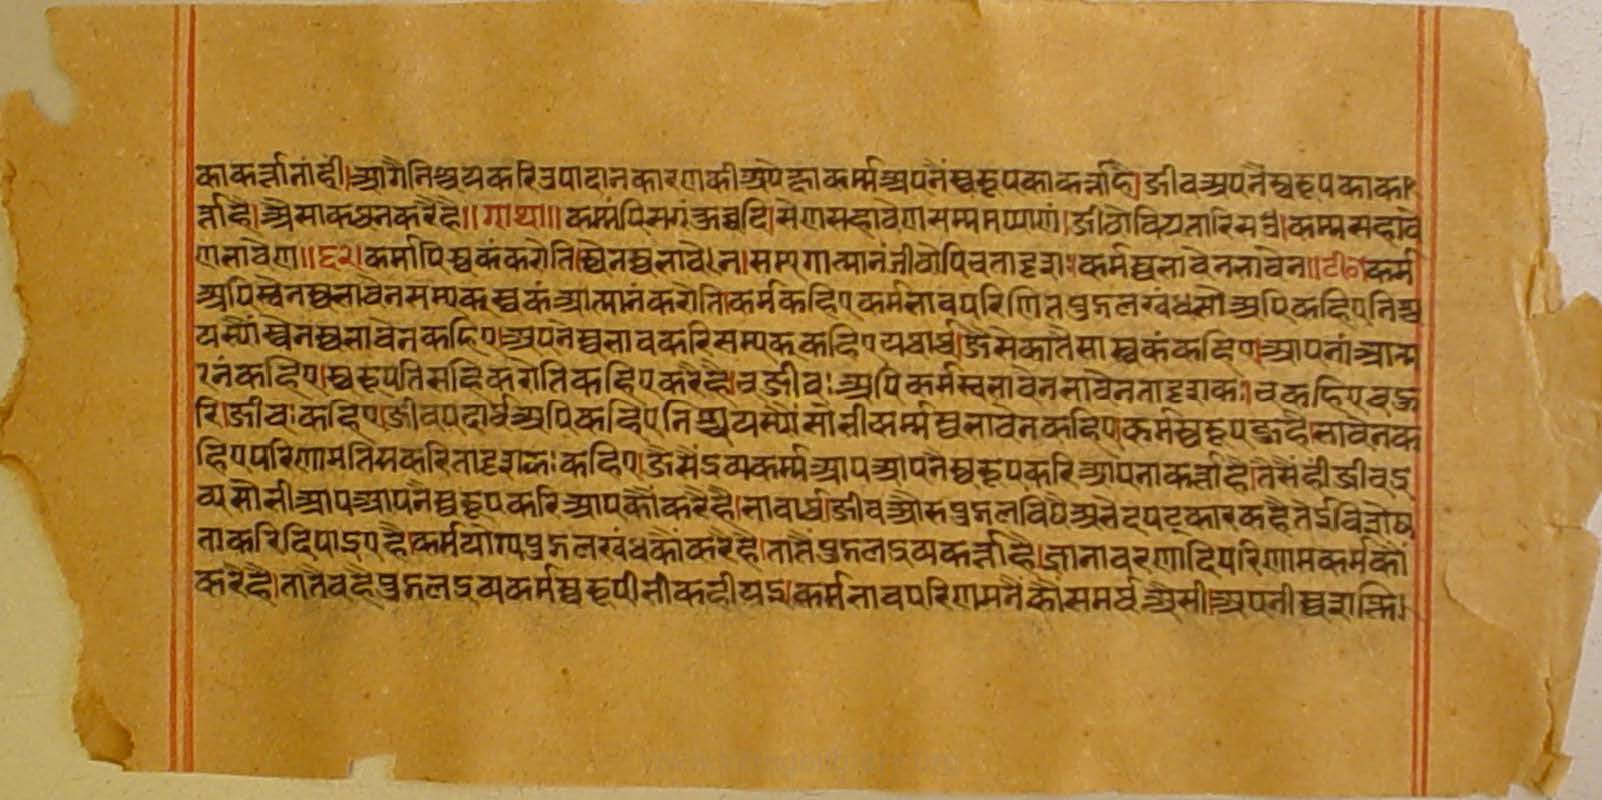 का कर्त्ता नांही।आगै निश्चय करि उपादान कारण की अपेक्षा कर्म्म अपनैं स्वरूप का कर्त्ता है।जीव अपनै स्वरूप का क
र्त्ता है।अैसा कथन करै है॥गाथा॥कम्मं पि सगं कुव्वदि।सेण सहावेण सम्ममप्पाणं।जीवो वि य तारिसउ।कम्म सहावे
ण भावेण॥६२।कर्मापि स्वकं करोति।स्वेन स्वभावेन।सम्यगात्मानं जीवोपि च तादृशः कर्मस्वभावेन भावेन॥टीका कर्म
अपि स्वेन स्वभावेन सम्यक् स्वकं आत्मानं करोति।कर्म कहिए कर्मभाव परिणित पुद्गल स्कंध सो अपि कहिए निश्च
यस्यौं स्वेन स्वभावेन कहिए।अपनै स्वभाव करि सम्यक् कहिए यथार्थ।जैसे का तैसा स्वकं कहिए।आपनां आत्म
नं कहिए।स्वरूप तिसहि करोति कहिए करै है।च जीवः अपि कर्मस्वभावेन भावेन तादृशकः।च कहिए बहु
रि।जीवः कहिए।जीव पदार्थ अपि कहिए निश्चयस्यौं सो भी कर्म्मस्वभावेन कहिए।कर्मस्वरूप जु है।भावेन क
हिए परिणाम तिस करि तादृशकः कहिए।जैसैं द्रव्यकर्म्म आप आपनै स्वरूप करि आपना कर्त्ता है।तैसैं ही जीव द्र
व्य सो भी आप आपनै स्वरूप करि आपकौं करै है।भावार्थ।जीव और पुद्गल विषै अभेद षट्कारक है ते विशेष
ता करि दिषाइए है।कर्मयोग्य पुद्गल स्कंध कौं करै है।तातै पुद्गल द्रव्य कर्त्ता है।ज्ञानावरणादि परिणाम कर्म कौं
करै है।तातै वहै पुद्गल द्रव्य कर्म स्वरूपी भी कहीयइ।कर्मभाव परिणामनै कौं समर्थ अैसी।अपनी स्वशक्ति।